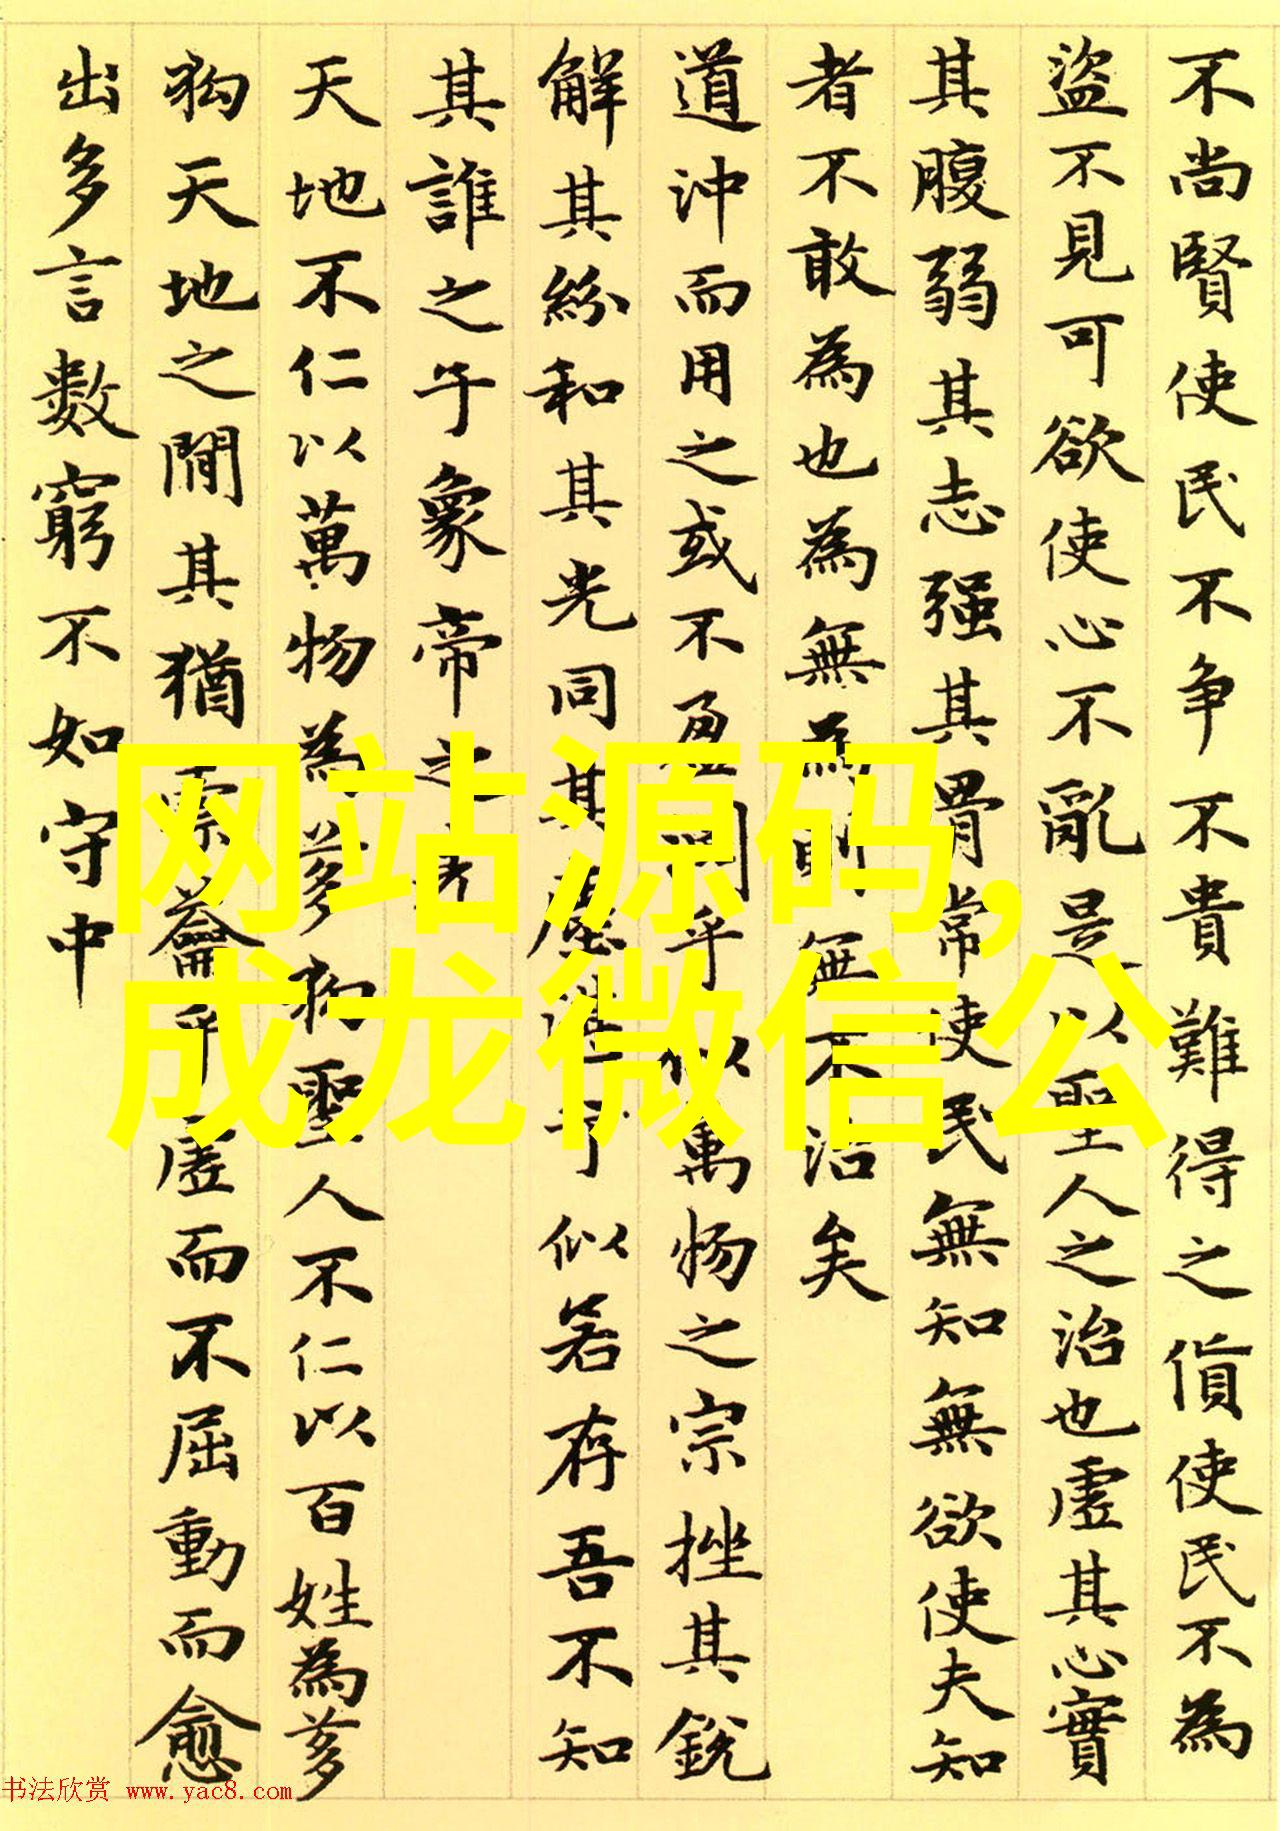 不尚賢使民不争不貴難得之貨使民不為
盜不見可欲使心不亂是以聖人之治也虛其心實
其腹弱其志强其骨常使民無知無欲使夫知
者不敢為也為無為則無不治矣
道沖而用之或不盈淵乎似萬物之宗挫其銳
解其紛和其光同其塵湛兮似若存吾不知
其誰之子象帝之
天地不仁以萬物為芻狗聖人不仁以百姓為芻
狗天地之間其猶橐籥乎虛而不屈動而愈
出多言數窮不如守中
网站源码,
成龙微信公
书法欣赏 www.yac8.com